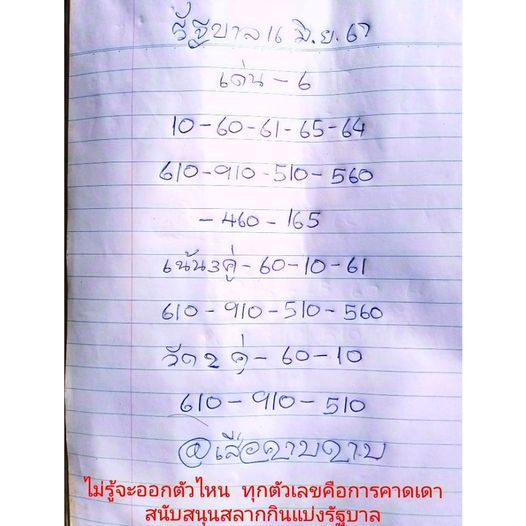 รัฐบาล 16 มิ.ย. 67
เด่น - 6
10-60-61-65-64
610-910-510-560
-460-165
เน้น 3 คู่ - 60-10-61
610-910-510-560
วัด 2 คู่ - 60-10
610-910-510
@เสือดาบดาบ
ไม่รู้จะออกตัวไหน ทุกตัวเลขคือการคาดเดา
สนับสนุนสลากกินแบ่งรัฐบาล